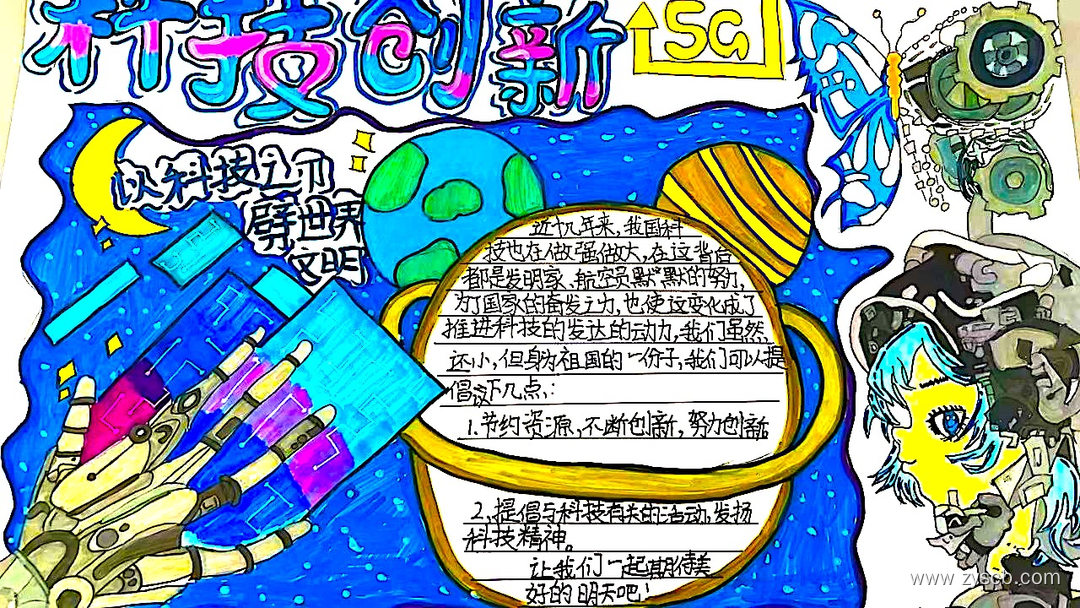 科技创新
5G
以科技之力
辟世界
文明
近十几年来，我国科
技也在做强做大，在这背后
都是发明家、航空员默默的努力，
为了国家的奋发之力，也使这变化成了
推进科技的发达的动力，我们虽然
还小，但身为祖国的一份子，我们可以提
倡以下几点：
1.节约资源，不断创新，努力创新
2.提倡与科技有关的活动，发扬
科技精神。
让我们一起期待美
好的明天吧！
www.zysco.com